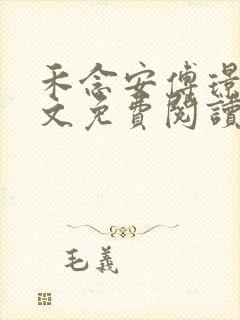 禾念安傅璟
文免費閱讀
毛義